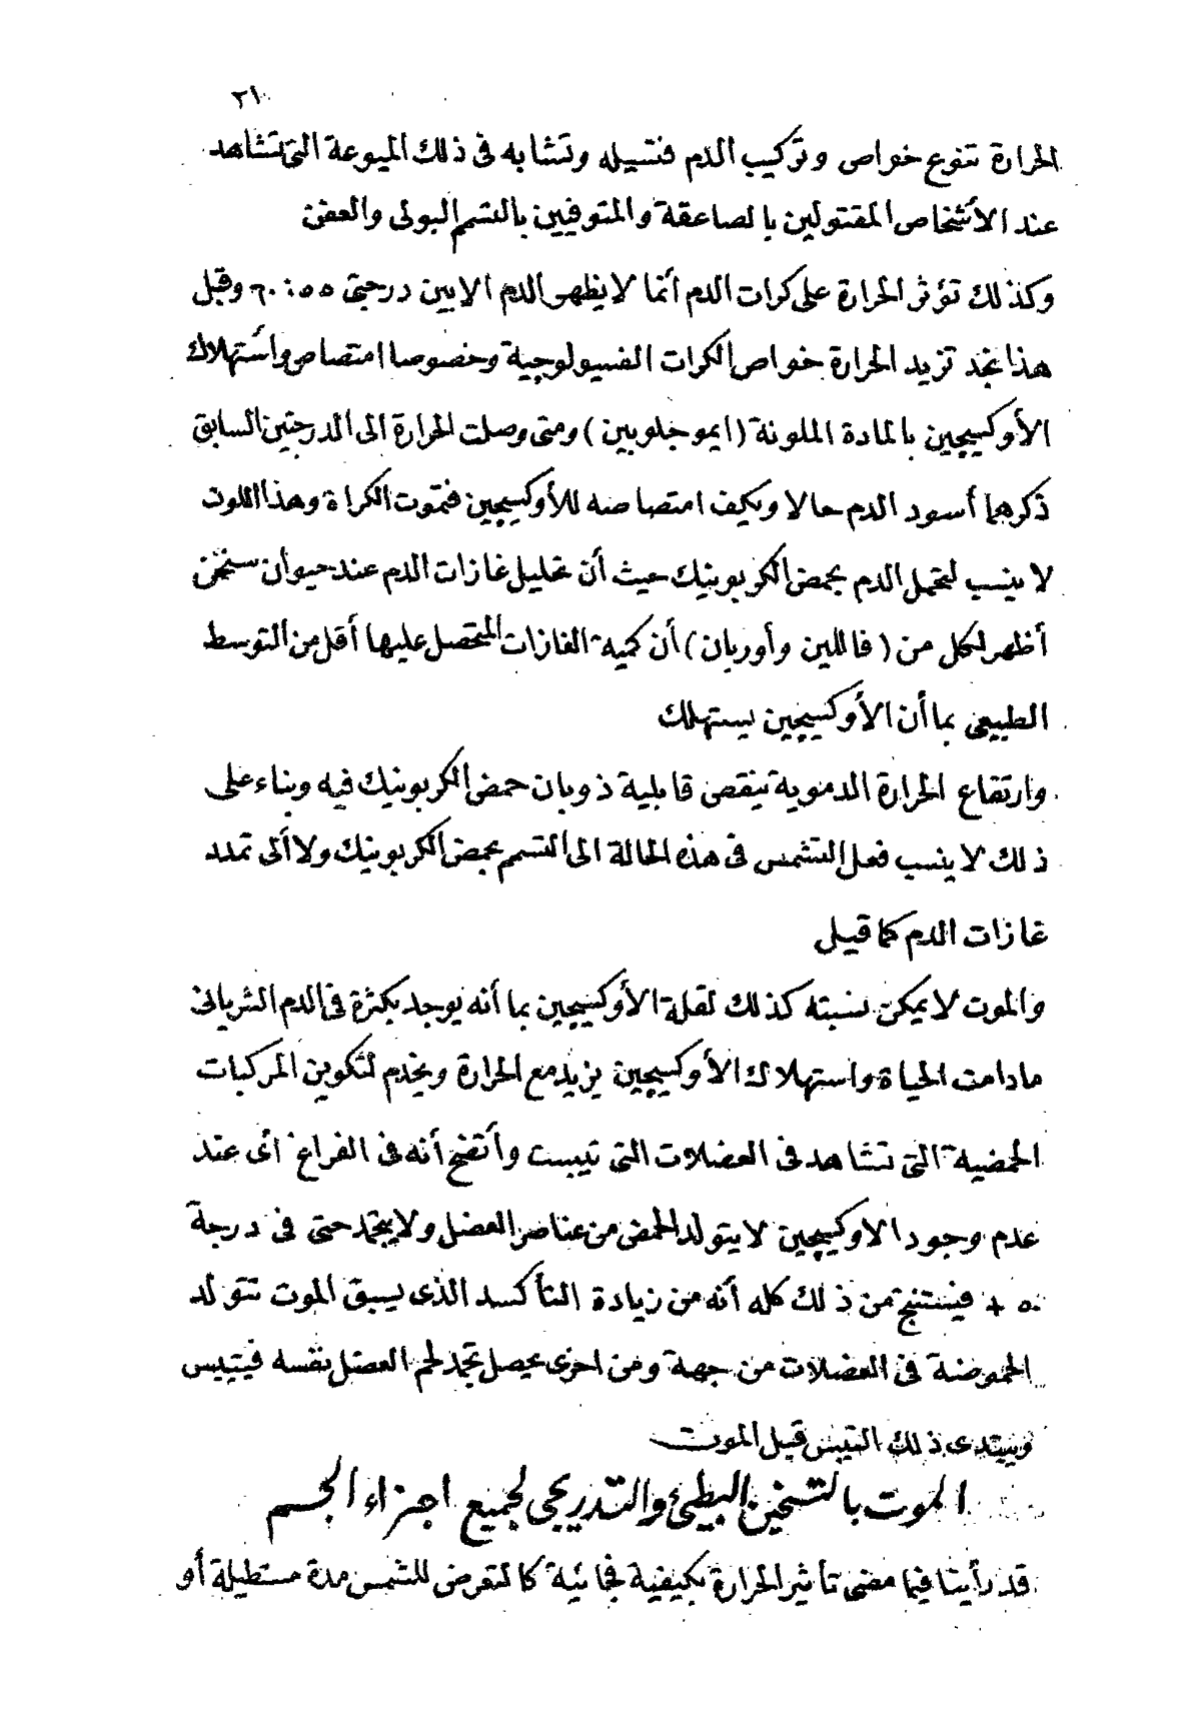 ٣١٠
الحرارة تنوع خواص وتركيب الدم فتسيله وتشابه فى ذلك الميوعة التى تشاهد
عند الأشخاص المقتولين بالصاعقة والمتوفيين بالتسمم البولى والعفن
وكذلك تؤثر الحرارة على كرات الدم أنما لا يظهر الدم الابين درجتى ٥٥ : ٦٠ وقبل
هذا نجد تزيد الحرارة خواص الكرات الفسيولوجية وخصوصا امتصاص واستهلاك
الأوكسيجين بالمادة الملونة (ايموجلوبين) ومتى وصلت الحرارة الى الدرجتين السابق
ذكرهما أسود الدم حالا ويكف امتصاصه للأوكسيجين فتموت الكراة وهذا اللون
لا ينسب لتحمل الدم بحمض الكربونيك حيث أن تحليل غازات الدم عند حيوان سنحن
أظهر لكل من (فاللين وأوربان) أن كمية الغازات المتحصل عليها أقل من التوسط
الطبيعى بما أن الأوكسيجين يستهلك
وارتفاع الحرارة الدموية ينقص قابلية ذوبان حمض الكربونيك فيه وبناء على
ذلك لا ينسب فعل التشمس فى هذه الحالة الى التسمم بحمض الكربونيك ولا ألى تمدد
غازات الدم كما قيل
والموت لا يمكن نسبته كذلك لقلة الأوكسيجين بما أنه يوجد بكثرة فى الدم الشريانى
مادامت الحياة واستهلاك الأوكسيجين يزيد مع الحرارة ويخدم لتكوين المركبات
الحمضية التى تشاهد فى العضلات التى تيبست وأتضح أنه فى الفراغ أى عند
عدم وجود الاوكسيجين لا يتولد الحمض من عناصر العضل ولا يتجمد حتى فى درجة
٥٠ + فيستنتج من ذلك كله أنه من زيادة التأكسد الذى يسبق الموت تتولد
الحموضة فى العضلات من جهة ومن اخرى يحصل تجمد لحم العضل نفسه فيتيبس
ويبتدى ذلك التيبس قبل الموت
الموت بالتسخين البطئ والتدريجى لجميع اجزاء الجسم
قد رأينا فيما مضى تأثير الحرارة بكيفية فجائية كالتعرض للشمس مدة مستطيلة أو